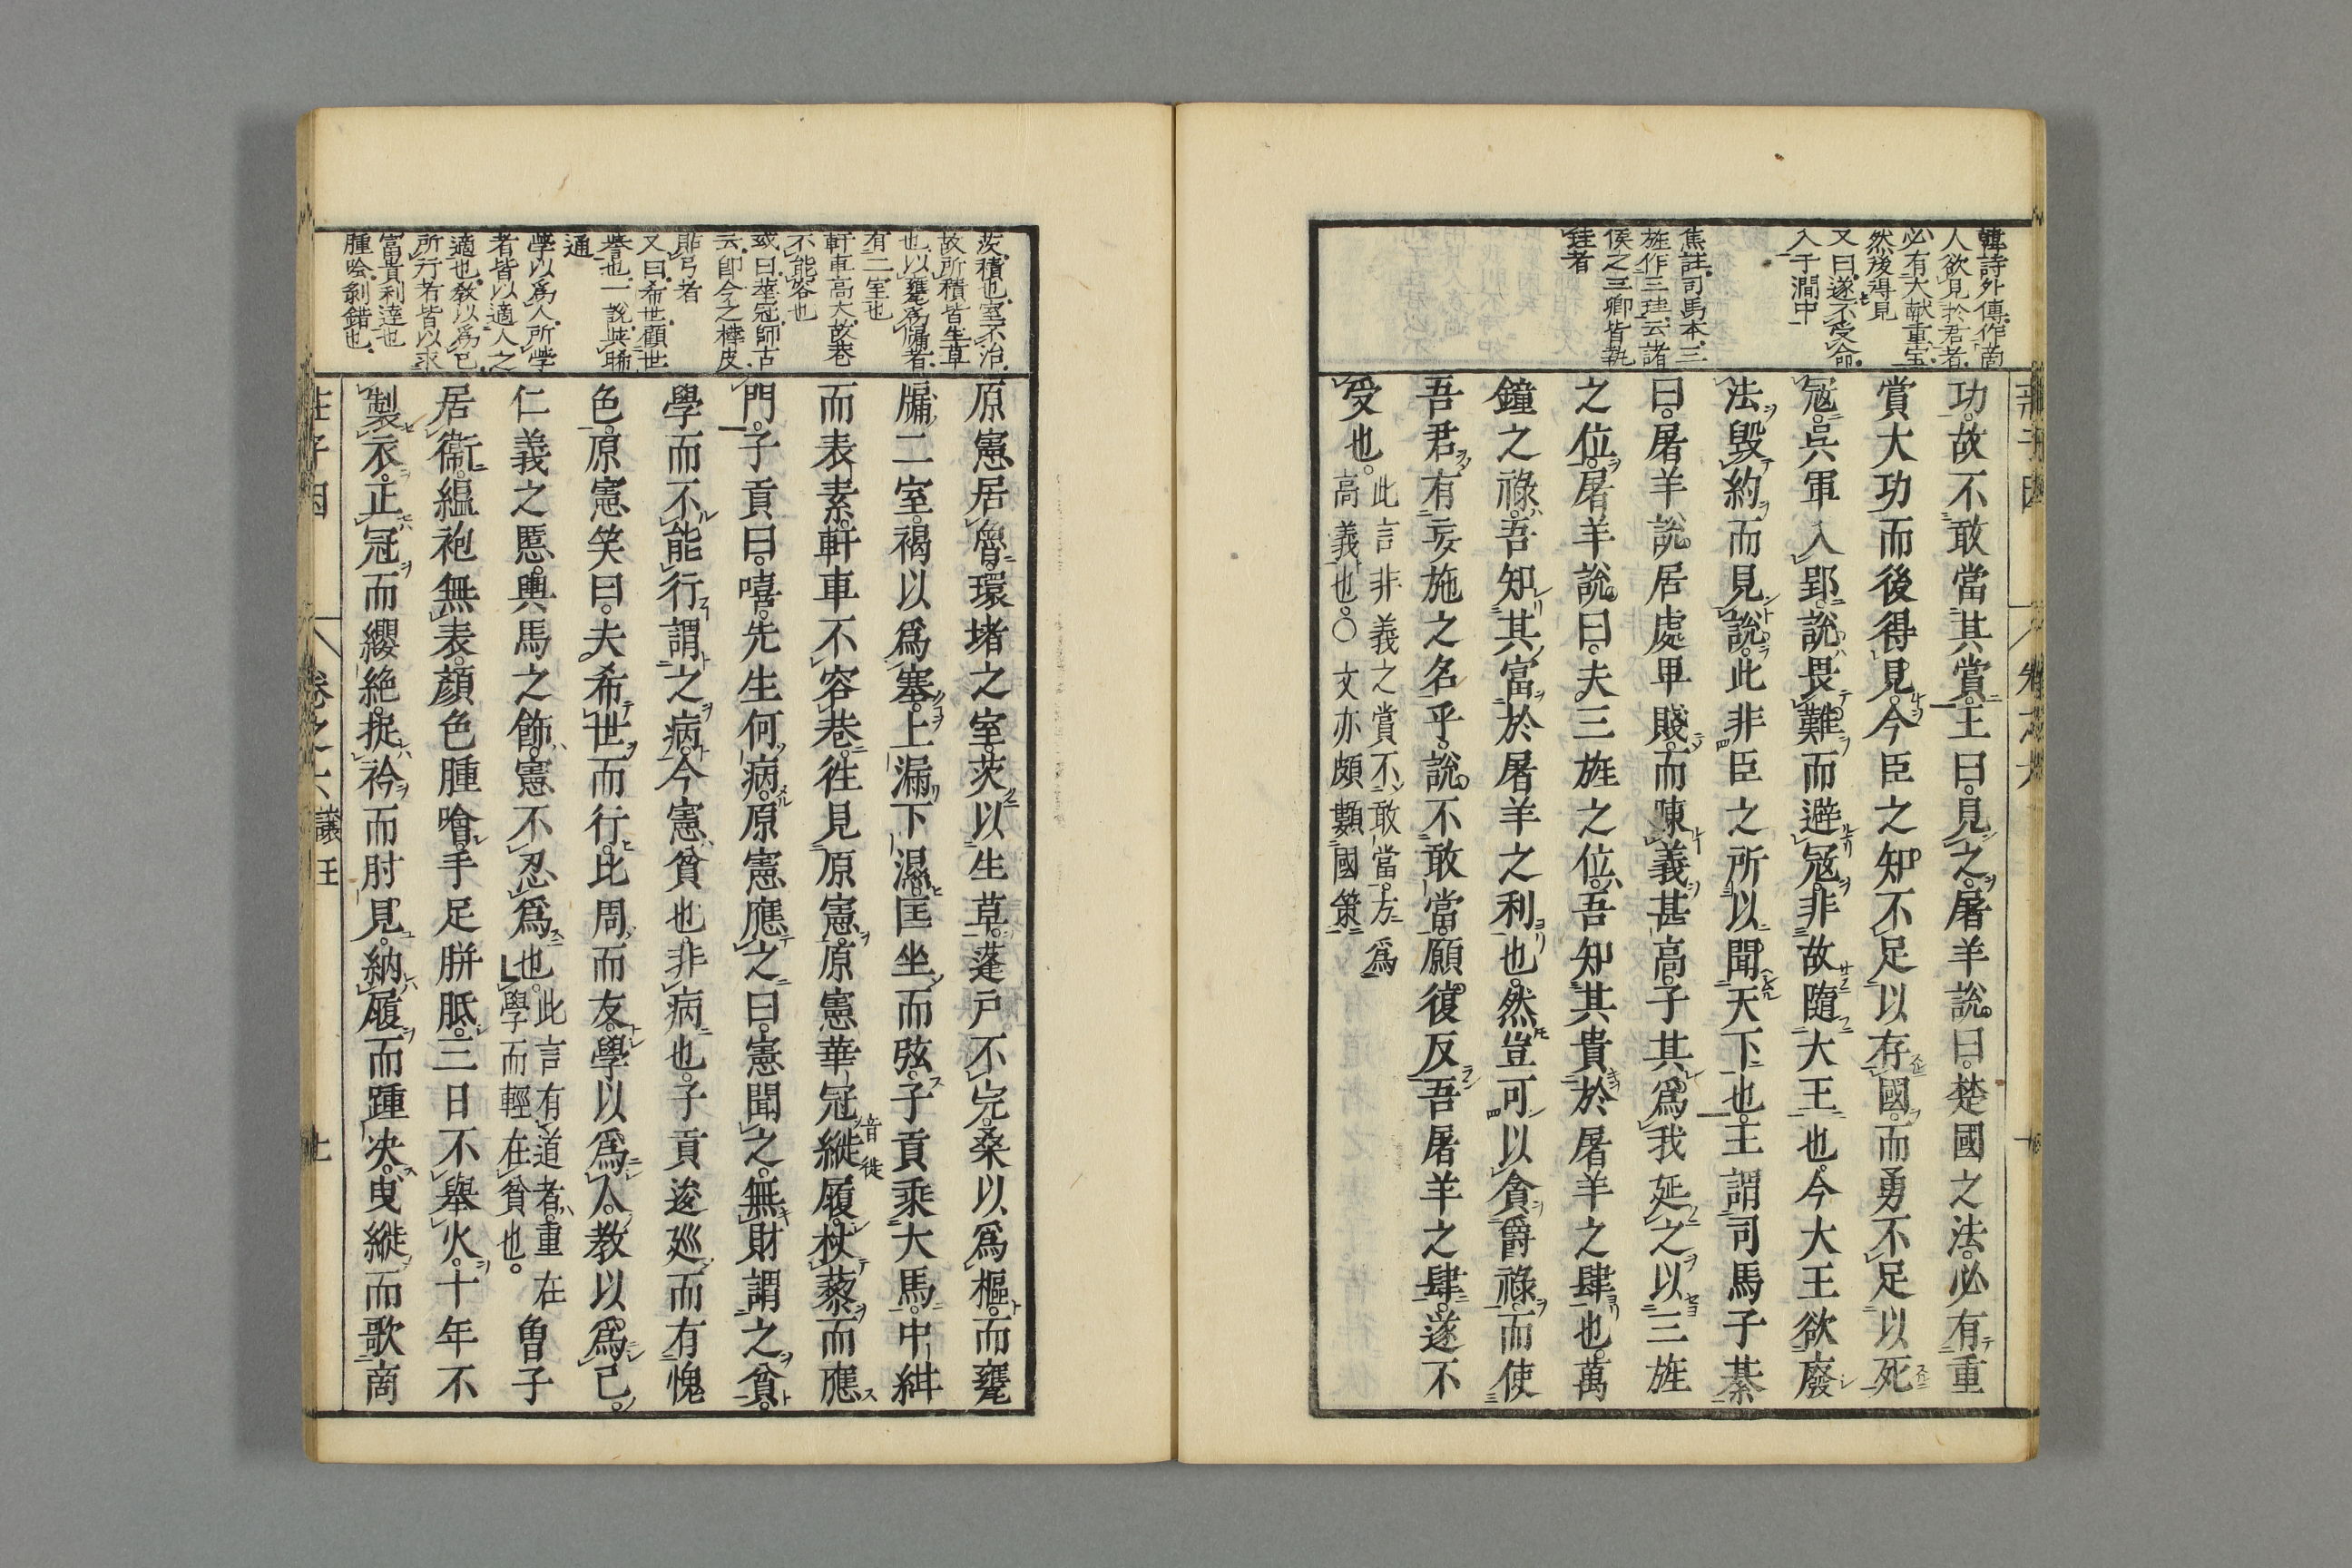 韓詩外傳作商
人欲見於君者
必有大献重宝
然後得見
又曰遂不受命
入于澗中
焦註司馬本三
旌作三珪云諸
侯之三卿皆執
珪者
功故不敢當其賞王曰見之屠羊說曰楚國之法必有重
賞大功而後得見今臣之知不足以存國而勇不足以死
冦吳軍入郢說畏難而避冦非故隨大王也今大王欲廢
法毀約而見說此非臣之所以聞天下也王謂司馬子綦
曰屠羊說居處卑賤而陳義甚高子其爲我延之以三旌
之位屠羊說曰夫三旌之位吾知其貴於屠羊之肆也萬
鐘之祿吾知其富於屠羊之利也然豈可以貪爵祿而使
吾君有妄施之名乎說不敢當願復反吾屠羊之肆遂不
受也
此言非義之賞不敢當方爲
高義也○文亦頗類國策
茨積也室不治
故所積皆生草
也以甕爲牖者
有二室也
軒車高大故巷
不能容也
或曰華冠師古
云即今之樺皮
貼弓者
又曰希世顧世
譽也一說與睎
通
學以爲人所學
者皆以適人之
適也教以爲己
所行者皆以求
富貴利達也
腫噲剝錯也
原憲居魯環堵之室茨以生草蓬戸不完桑以爲樞而甕
牖二室褐以爲塞上漏下濕匡坐而弦子貢乘大馬中紺
而表素軒車不容巷徃見原憲原憲華冠縰履杖藜而應
音徙
門子貢曰嘻先生何病原憲應之曰憲聞之無財謂之貧
學而不能行謂之病今憲貧也非病也子貢逡巡而有愧
色原憲笑曰夫希世而行比周而友學以爲人教以爲己
仁義之慝輿馬之飾憲不忍爲也
此言有道者重在
學而輕在貧也
曾子
居衞縕袍無表顏色腫噲手足胼胝三日不舉火十年不
製衣正冠而纓絶捉衿而肘見納履而踵决曳縰而歌商
卷之六 讓王